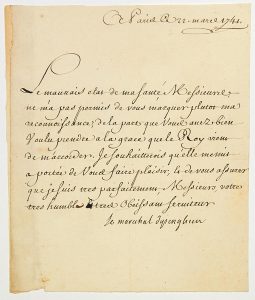 A Paris ce 22 mars 1741.
Le mauuais etat de ma santé Messieurs,
ne m'a pas permis de vous marquer plutot ma
reconnoissance, de la part que vous auez bien
voulu prendre a la grace que le Roy vient
de m'accorder. Je souhaitterois qu'elle me mit
a portée de vous faire plaisir, et de vous assurer
que je suis tres parfaitement Messieurs, votre
tres humble et tres obeissant seruiteur
le marechal